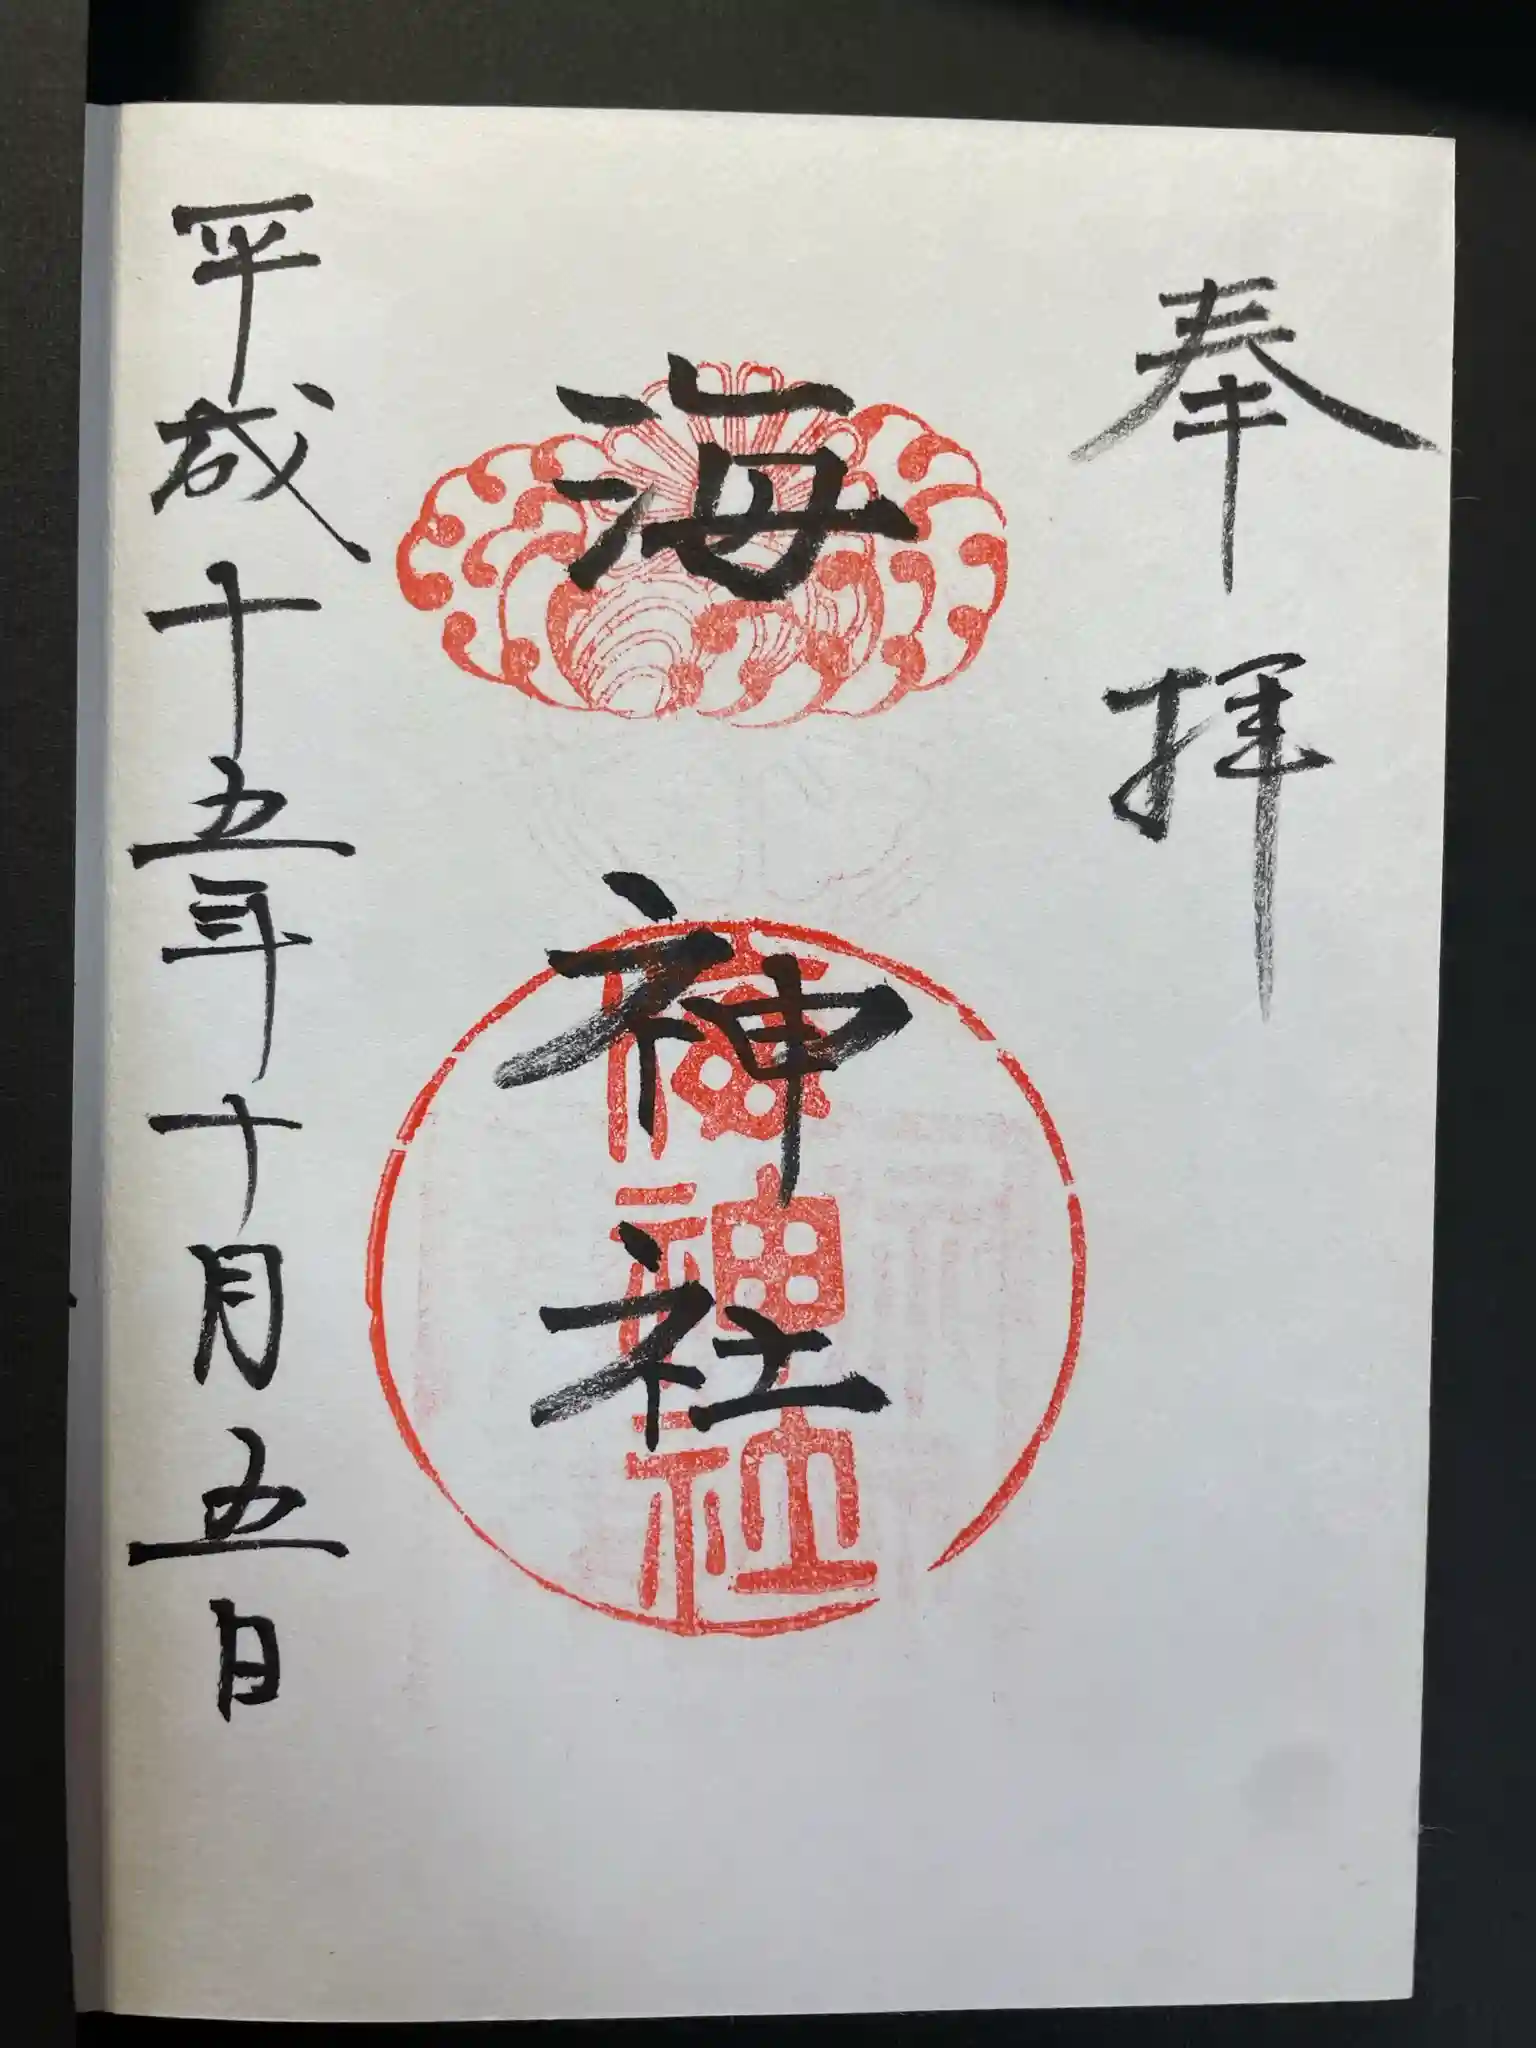 奉拝
海神社
海神社
平成十五年十月五日